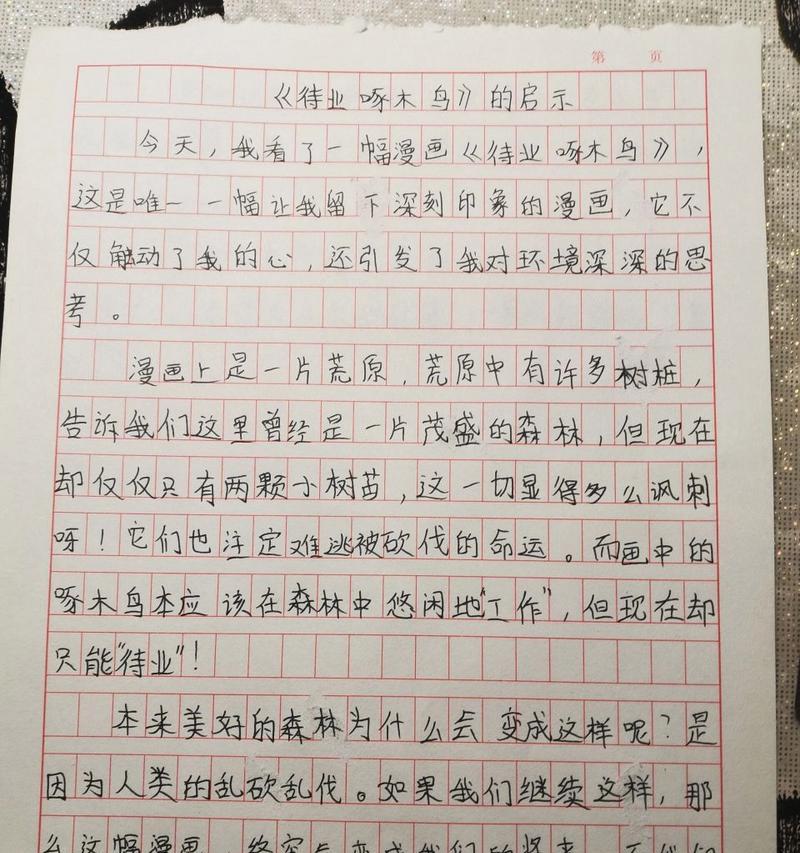 第 页
《待业啄木鸟》的启示
今天，我看了一幅漫画《待业啄木鸟》，
这是唯一一幅让我留下深刻印象的漫画，它不
仅触动了我的心，还引发了我对环境深深的思
考。
漫画上是一片荒原，荒原中有许多树桩，
告诉我们这里曾经是一片茂盛的森林，但现在
却仅仅只有两颗小树苗，这一切显得多么讽刺
呀！它们也注定难逃被砍伐的命运。而画中的
啄木鸟本应该在森林中悠闲地“工作”，但现在却
只能“待业”！
本来美好的森林为什么会变成这样呢？是
因为人类的乱砍乱伐。如果我们继续这样，那
么这幅漫画，终究会变成我们的将来，